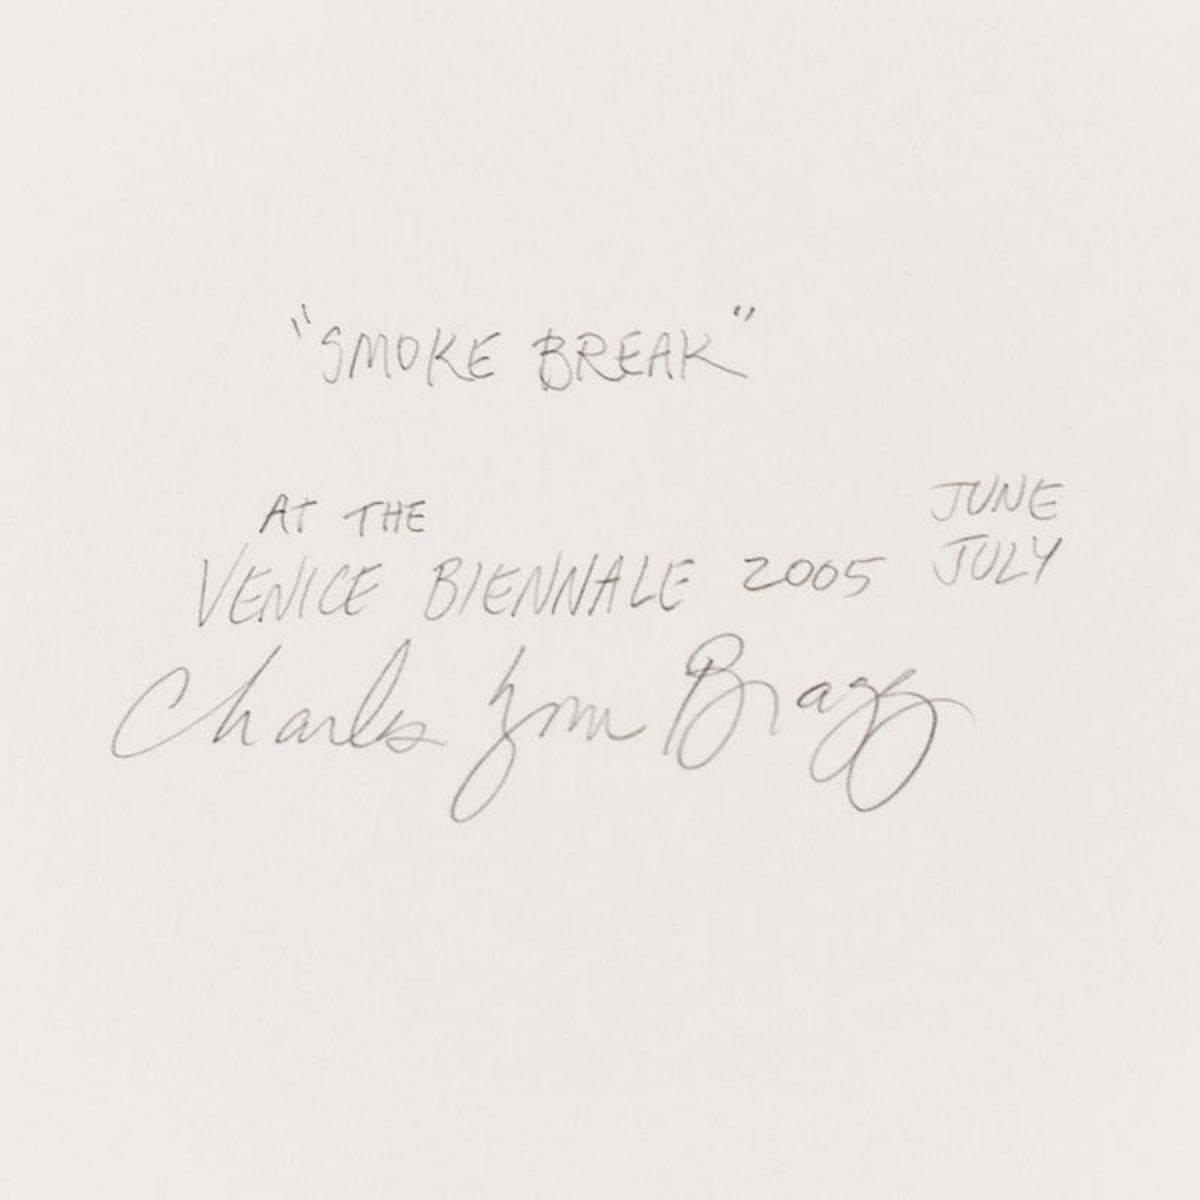 "SMOKE BREAK"
AT THE
VENICE BIENNALE 2005 JUNE
JULY
Charles Lynn Bragg